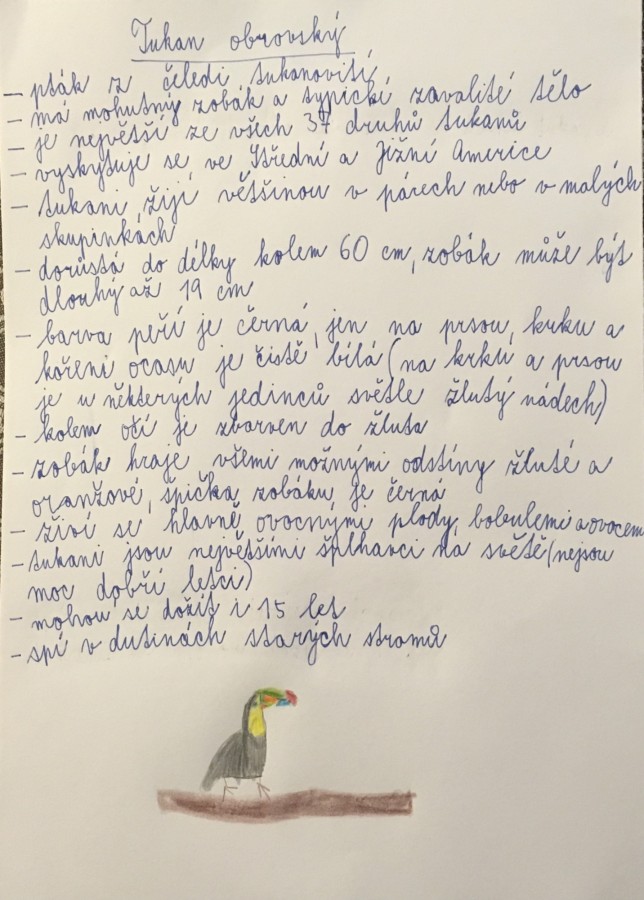 Tukan obrovský
- pták z čeledi tukanovití
- má mohutný zobák a typické zavalité tělo
- je největší ze všech 37 druhů tukanů
- vyskytuje se ve Střední a Jižní Americe
- tukani žijí většinou v párech nebo v malých
skupinkách
- dorůstá do délky kolem 60 cm, zobák může být
dlouhý až 19 cm
- barva peří je černá, jen na prsou, krku a
kořeni ocasu je čistě bílá (na krku a prsou
je u některých jedinců světle žlutý nádech)
- kolem očí je zbarven do žluta
- zobák hraje všemi možnými odstíny žluté a
oranžové, špička zobáku je černá
- živí se hlavně ovocnými plody, bobulemi a ovocem
- tukani jsou největšími šplhavci na světě (nejsou
moc dobří letci)
- mohou se dožít i 15 let
- spí v dutinách starých stromů